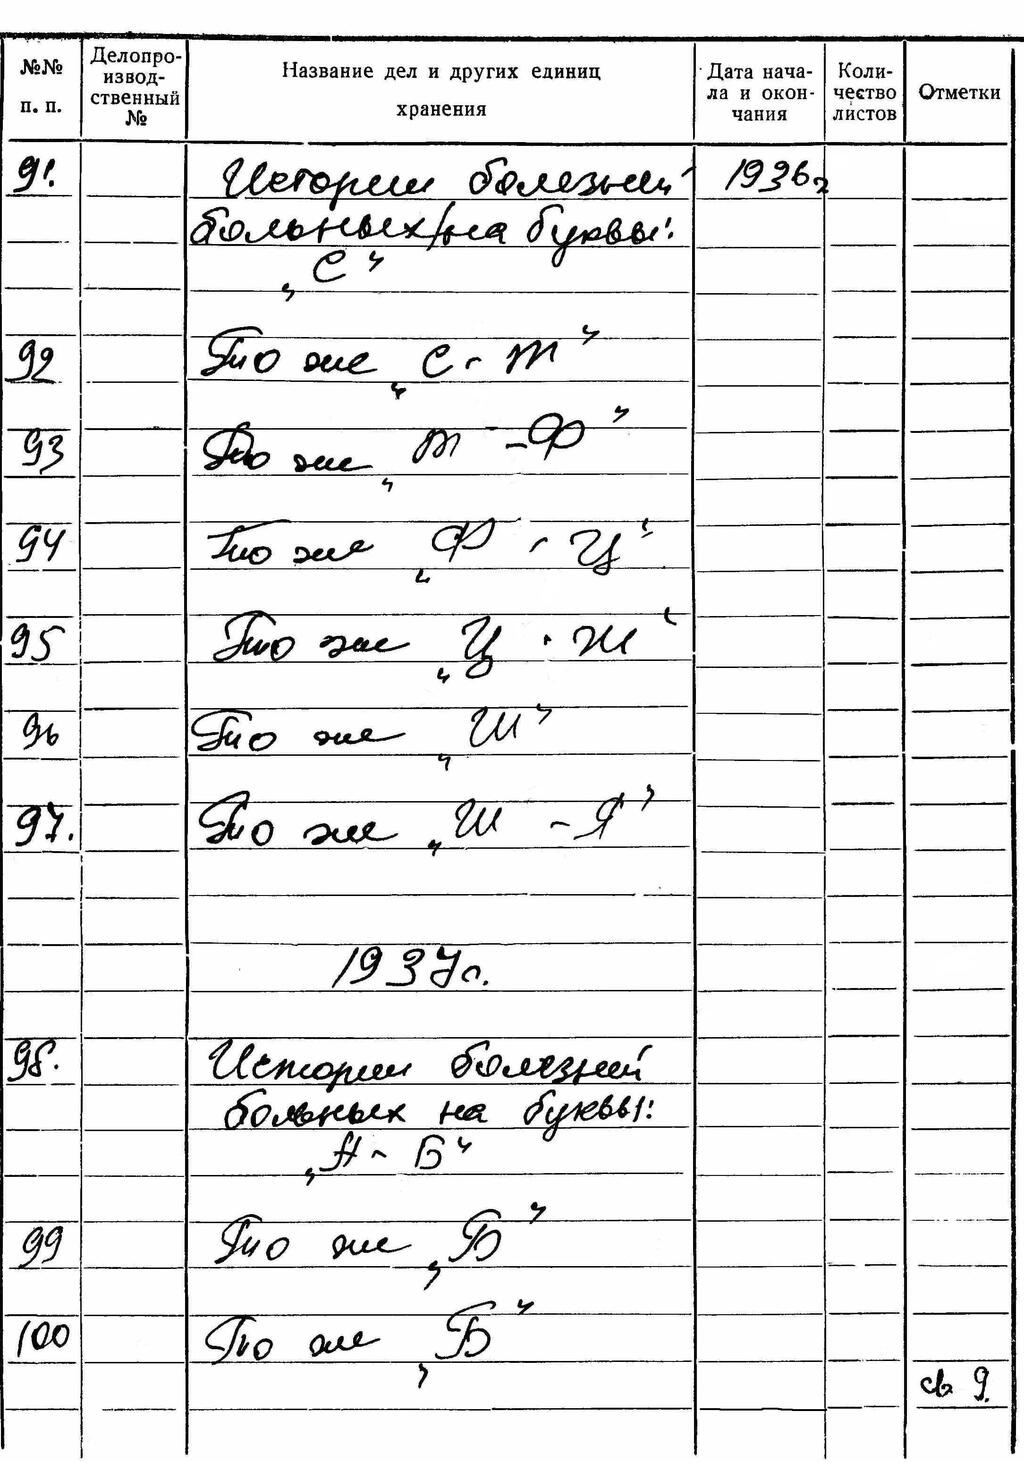 №№ п. п. Делопро-изводственный № Название дел и других единиц хранения Дата нача-ла и окон-чания Коли-чество листов Отметки
91. Истории болезний 1936г
больных/на буквы:
„С"
92 То же „С - Т"
93 То же „Т - Ф"
94 То же „Ф - Ц"
95 То же „Ц - Ш"
96 То же „Ш"
97. То же „Ш - Я"
1937г.
98. Истории болезний
больных на буквы:
„А - Б"
99 То же „Б"
100 То же „Б"
св 9.